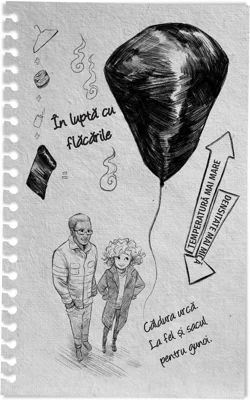 În luptă cu
flăcările
TEMPERATURĂ MAI MARE
DENSITATE MAI MICĂ
Căldura urcă.
La fel și sacul
pentru gunoi.